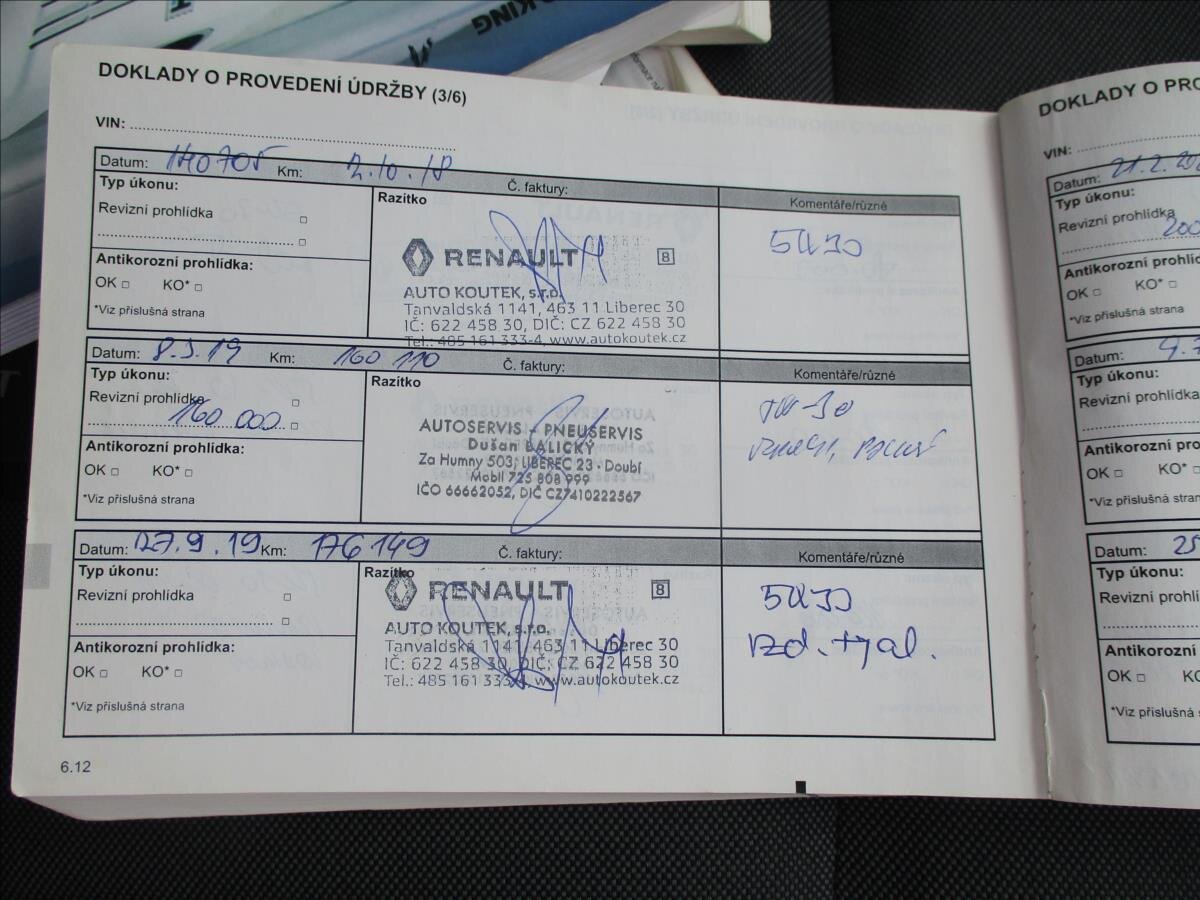 KING
DOKLADY O PROVEDENÍ ÚDRŽBY (3/6)
VIN:
Datum: 140705 Km: 2.10.18 Č. faktury:
Typ úkonu:
Razítko
Komentáře/různé
Revizní prohlídka
RENAULT 8
5W30
AUTO KOUTEK, s.r.o.
Tanvaldská 1141, 463 11 Liberec 30
IČ: 622 458 30, DIČ: CZ 622 458 30
Tel.: 485 161 333-4, www.autokoutek.cz
Antikorozní prohlídka:
OK KO*
*Viz příslušná strana
Datum: 8.3.19 Km: 160 110 Č. faktury:
Typ úkonu:
Razítko
Komentáře/různé
Revizní prohlídka
160 000
AUTOSERVIS - PNEUSERVIS
Dušan BALICKÝ
Za Humny 503, LIBEREC 23 - Doubí
Mobil 725 808 999
IČO 66662052, DIČ CZ7410222567
5W-30
Antikorozní prohlídka:
OK KO*
*Viz příslušná strana
Datum: 27.9.19 Km: 176149 Č. faktury:
Typ úkonu:
Razítko
Komentáře/různé
Revizní prohlídka
RENAULT 8
5W30
AUTO KOUTEK, s.r.o.
Tanvaldská 1141, 463 11 Liberec 30
IČ: 622 458 30, DIČ: CZ 622 458 30
Tel.: 485 161 333-4, www.autokoutek.cz
Antikorozní prohlídka:
OK KO*
*Viz příslušná strana
6.12
DOKLADY O
VIN:
Datum: 21.2.
Typ úkonu:
Revizní prohlídka
Antikorozní
OK KO*
*Viz příslušná strana
Datum:
Typ úkonu:
Revizní
Antikorozní
OK KO*
*Viz příslušná
Datum: 25
Typ úkonu:
Revizní
Antikorozní
OK
*Viz příslušná